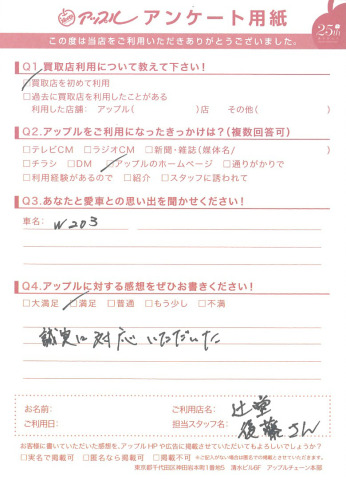 アップル アンケート用紙
25th
この度は当店をご利用いただきありがとうございました。
Q1.買取店利用について教えて下さい!
□買取店を初めて利用
□過去に買取店を利用したことがある
利用した店舗: アップル( )店 その他( )
Q2.アップルをご利用になったきっかけは?(複数回答可)
□テレビCM □ラジオCM □新聞・雑誌(媒体名/ )
□チラシ □DM □アップルのホームページ □通りがかりで
□利用経験があるので □紹介 □スタッフに誘われて
Q3.あなたと愛車との思い出を聞かせください!
車名: W203
Q4.アップルに対する感想をぜひお書きください!
□大満足 □満足 □普通 □もう少し □不満
誠実に対応いただいた
お名前: ご利用店名: 辻堂
ご利用日: 担当スタッフ名: 後藤さん
お客様に書いていただいた感想を、アップルHPや広告に掲載させていただいてもよろしいでしょうか?
□実名で掲載可 □匿名なら掲載可 □掲載不可 ※ご記入がない場合は匿名での掲載とさせていただきます。
東京都千代田区神田岩本町1番地5 清水ビル6F アップルチェーン本部